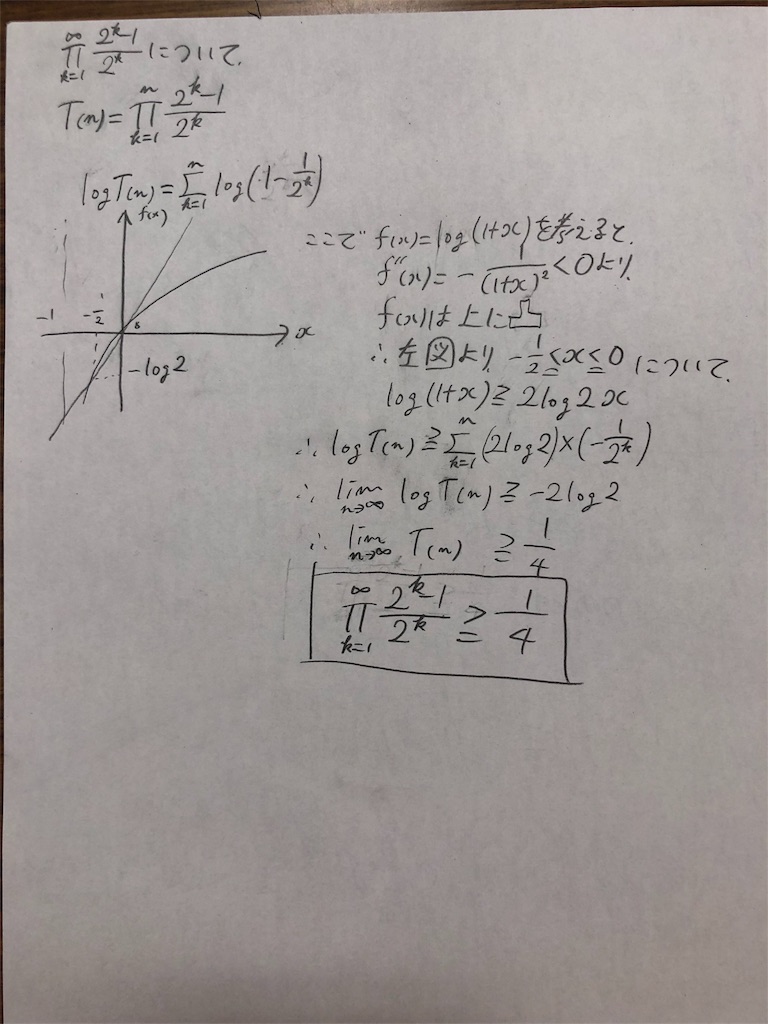 ∞∏k=1 (2^k-1)/2^k について.
T(n)=n∏k=1 (2^k-1)/2^k
log T(n)=nΣk=1 log(1-1/2^k)
f(x)
-1 -1/2 x
-log2
ここで f(x)=log(1+x)を考えると.
f''(x)=-1/(1+x)^2<0より.
f(x)は上に凸
∴左図より -1/2≦x≦0 について.
log(1+x)≧2log2x
∴ log T(n)≧nΣk=1 (2log2)×(-1/2^k)
∴ lim n→∞ log T(n)≧-2log2
∴ lim n→∞ T(n) ≧1/4
∞∏k=1 (2^k-1)/2^k≧1/4